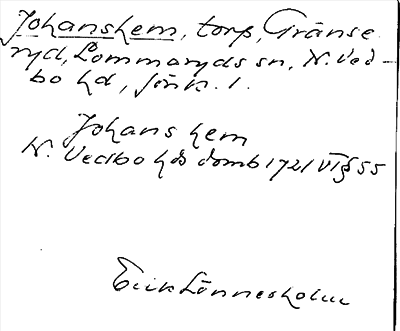 Johanshem, torp, Gränse
ryd, Lommaryds sn, N. Ved-
bo hd, Jönk. l.
Johans hem
N. Vedbo hds domb 1721 VI § 55
Erik Lönnerholm